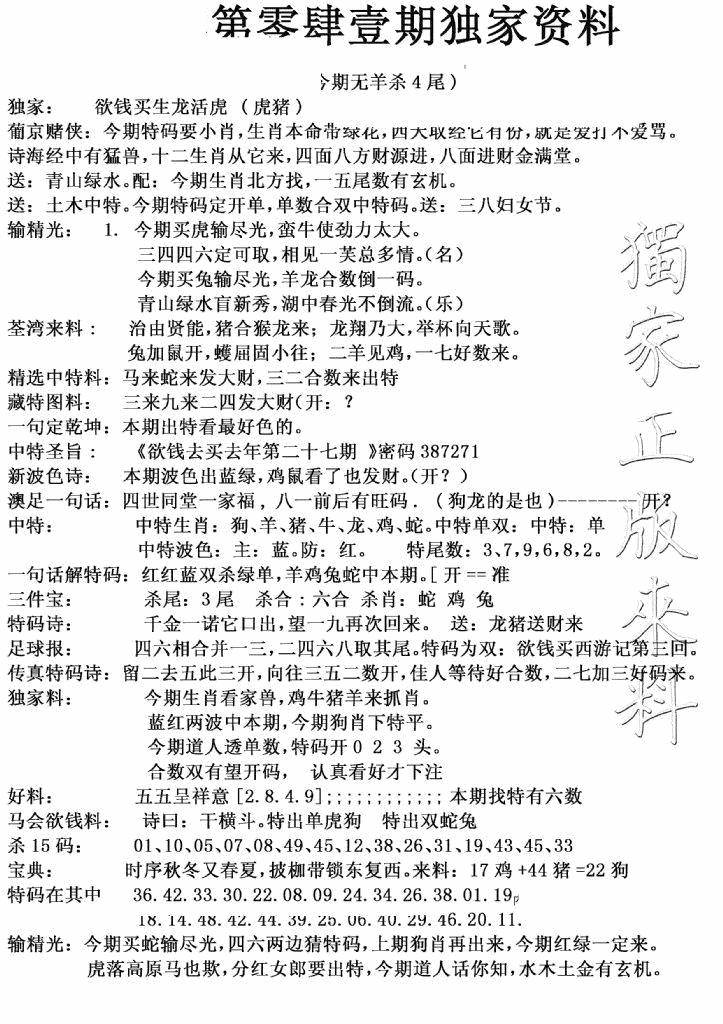 第零肆壹期独家资料
今期无羊杀4尾)
独家: 欲钱买生龙活虎 (虎猪)
葡京赌侠: 今期特码要小肖,生肖本命带绿花,四大取经它有份,就是爱打不爱骂。
诗海经中有猛兽,十二生肖从它来,四面八方财源进,八面进财金满堂。
送: 青山绿水。配: 今期生肖北方找,一五尾数有玄机。
送: 土木中特。今期特码定开单,单数合双中特码。送: 三八妇女节。
输精光: 1. 今期买虎输尽光,蛮牛使劲力太大。
三四四六定可取,相见一芙总多情。(名)
今期买兔输尽光,羊龙合数倒一码。
青山绿水盲新秀,湖中春光不倒流。(乐)
荃湾来料: 治由贤能,猪合猴龙来; 龙翔乃大,举杯向天歌。
兔加鼠开,蠖屈固小往; 二羊见鸡,一七好数来。
精选中特料: 马来蛇来发大财,三二合数来出特
藏特图料: 三来九来二四发大财(开: ?
一句定乾坤: 本期出特看最好色的。
中特圣旨: 《欲钱去买去年第二十七期 》密码 387271
新波色诗: 本期波色出蓝绿,鸡鼠看了也发财。(开? )
澳足一句话: 四世同堂一家福, 八一前后有旺码. (狗龙的是也)---------开?
中特: 中特生肖: 狗、羊、猪、牛、龙、鸡、蛇。中特单双: 中特: 单
中特波色: 主: 蓝。防: 红。 特尾数: 3、7,9,6,8,2。
一句话解特码: 红红蓝双杀绿单,羊鸡兔蛇中本期。[ 开 == 准
三件宝: 杀尾: 3 尾 杀合: 六合 杀肖: 蛇 鸡 兔
特码诗: 千金一诺它口出,望一九再次回来。 送: 龙猪送财来
足球报: 四六相合并一三,二四六八取其尾。特码为双: 欲钱买西游记第三回。
传真特码诗: 留二去五此三开,向往三五二数开,佳人等待好合数,二七加三好码来。
独家料: 今期生肖看家兽,鸡牛猪羊来抓肖。
蓝红两波中本期,今期狗肖下特平。
今期道人透单数,特码开0 2 3 头。
合数双有望开码, 认真看好才下注
好料: 五五呈祥意 [2.8.4.9];;;;;;;;;;;; 本期找特有六数
马会欲钱料: 诗曰: 干横斗。特出单虎狗 特出双蛇兔
杀15码: 01、10、05、07、08、49、45、12、38、26、31、19、43、45、33
宝典: 时序秋冬又春夏,披枷带锁东复西。来料: 17 鸡 +44 猪 =22 狗
特码在其中 36. 42. 33. 30. 22. 08. 09. 24. 34. 26. 38. 01. 19
18. 14. 48. 42. 44. 39. 25. 06. 40. 29. 46. 20. 11.
输精光: 今期买蛇输尽光,四六两边猜特码,上期狗肖再出来,今期红绿一定来。
虎落高原马也欺,分红女郎要出特,今期道人话你知,水木土金有玄机。
獨家正版來料